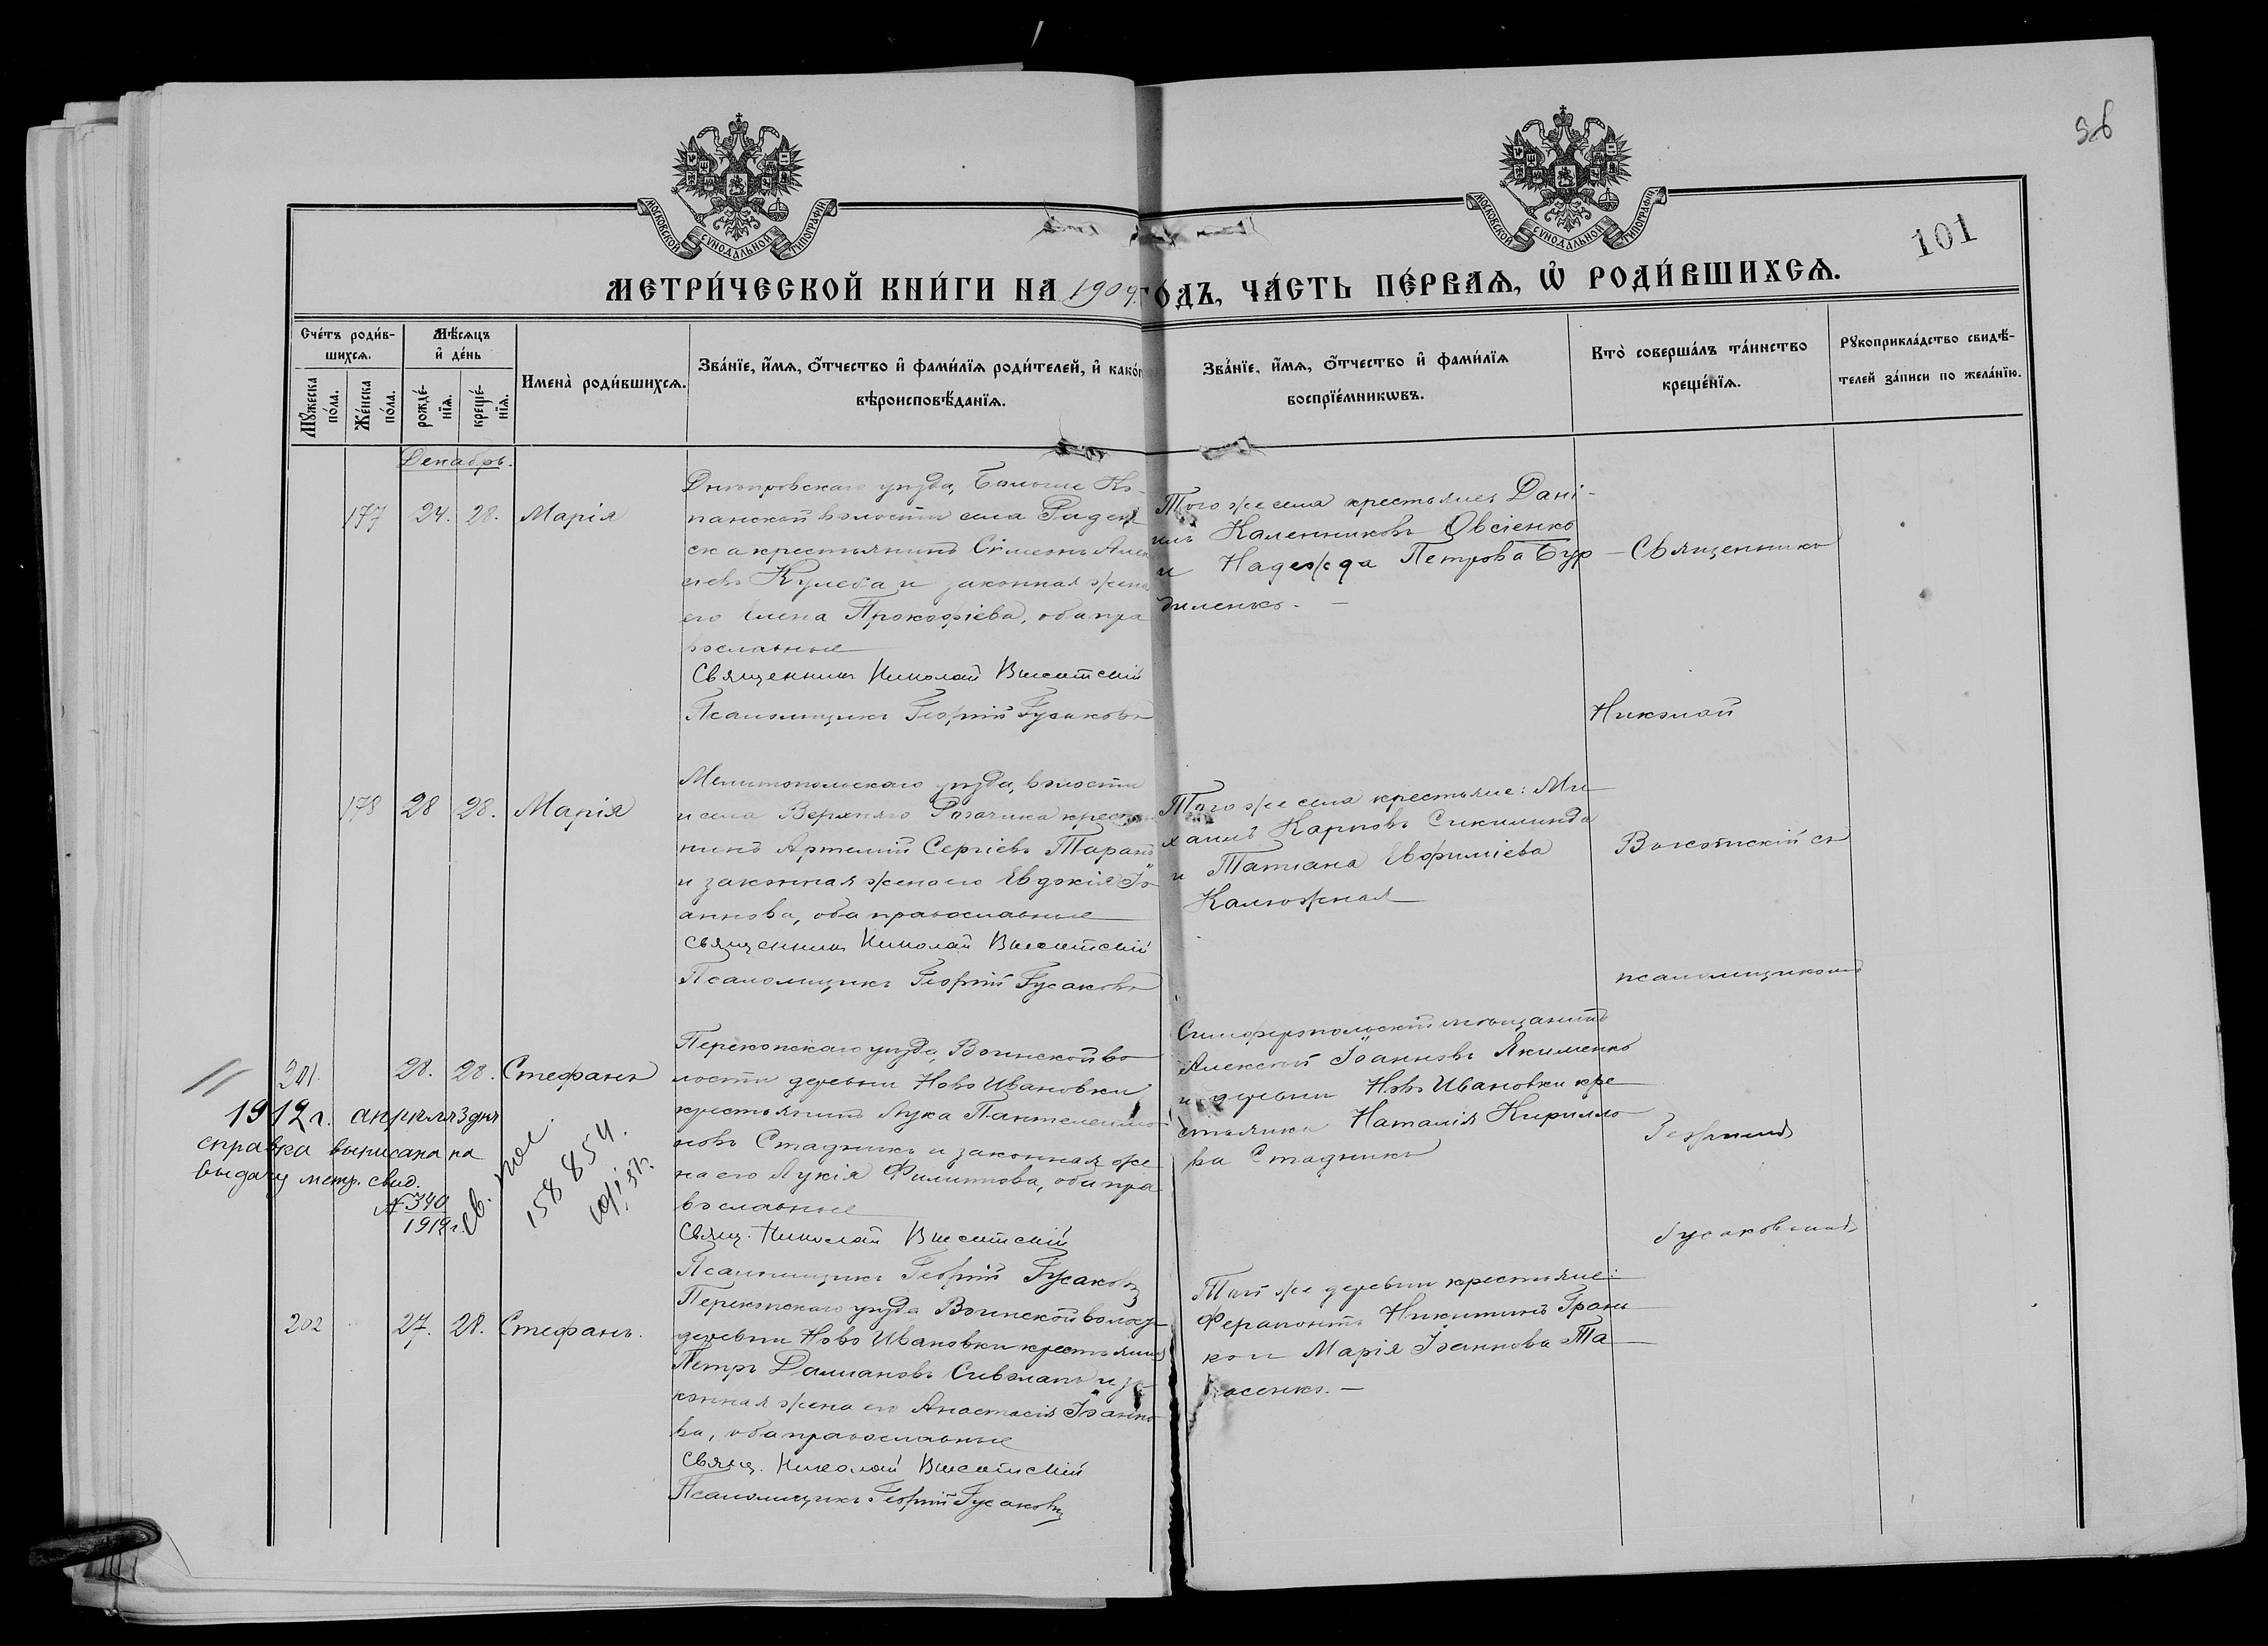 56
101
МОСКОВСКОЙ СѴНОДАЛЬНОЙ ТИПОГРАФІИ
МОСКОВСКОЙ СѴНОДАЛЬНОЙ ТИПОГРАФІИ
МЕТРИ́ЧЕСКОЙ КНИ́ГИ НА 1904 ГО́ДЪ, ЧА́СТЬ ПЕ́РВАѦ, Ѡ҆ РОДИ́ВШИХСѦ.
Сче́тъ роди́в-
шихсѧ.
Мꙋ́жеска по́ла.
Же́нска по́ла.
Мѣ́сѧцъ
и҆ де́нь
рожде́-
нїѧ.
креще́-
нїѧ.
Имена̀ роди́вшихсѧ.
Зва́нїе, и҆́мѧ, ѻ҆́тчество и҆ фами́лїѧ роди́телей, и҆ како́гѡ
вѣроисповѣ́данїѧ.
Зва́нїе, и҆́мѧ, ѻ҆́тчество и҆ фами́лїѧ
воспрїе́мникѡвъ.
Кто̀ соверша́лъ та́инство
креще́нїѧ.
Рꙋкоприкла́дство свидѣ́-
телей за́писи по жела́нїю.
Декабрь.
177 24. 28. Марія
Днѣпровскаго уѣзда, Больше Ко-
панской волости села Раден
ска крестьянинъ Сѵмеонъ Алек
ѣевъ Кулеба и законная жена
его Елена Прокофіева, оба пра
вославные
Священникъ Николай Высотскій
Псаломщикъ Георгій Гусаковъ
Того же села крестьяне: Дані-
илъ Каленниковъ Овсіенко
и Надежда Петрова Бур
диленко. —
Священникъ
Николай
178 28 28. Марія
Мелитопольскаго уѣзда, волости
и села Верхняго Рогачика кресть
нинъ Артемій Сергіевъ Таранъ
и законная жена его Евдокія Іо
аннова, оба православные
Священникъ Николай Высотскій
Псаломщикъ Георгій Гусаковъ
Того же села крестьяне: Ми
хаилъ Карповъ Сикиминда
и Татіана Евфиміева
Калюжная
Высотскій съ
псаломщикомъ
201. 28. 28. Стефанъ
Перекопскаго уѣзда, Воинской во
лости деревни Ново Ивановки
крестьянинъ Лука Пантелеимо
новъ Стадникъ и законная же
на его Лукія Филиппова, оба пра
вославные
Свящ. Николай Высотскій
Псаломщикъ Георгій Гусаковъ
Симферопольскій мѣщанинъ
Алексѣй Іоанновъ Якименко
и деревни Ново Ивановки кре
стьянка Наталія Кирилло
ва Стадникъ
Георгіемъ
Гусаковымъ
1912 г. апрѣля 3 дня
справка выписана на
выдачу метр. свид.
№ 340
1912 г.
св. пол.
158 854.
202 27. 28. Стефанъ.
Перекопскаго уѣзда Воинской волос
деревни Ново Ивановки крестьянинъ
Петръ Даміановъ Сиволапъ и за
конная жена его Анастасія Іоанно
ва, оба православные
Свящ. Николай Высотскій
Псаломщикъ Георгій Гусаковъ
Той же деревни крестьяне:
Ферапонтъ Никитинъ Грань
ко и Марія Іоаннова Та
расенко. —